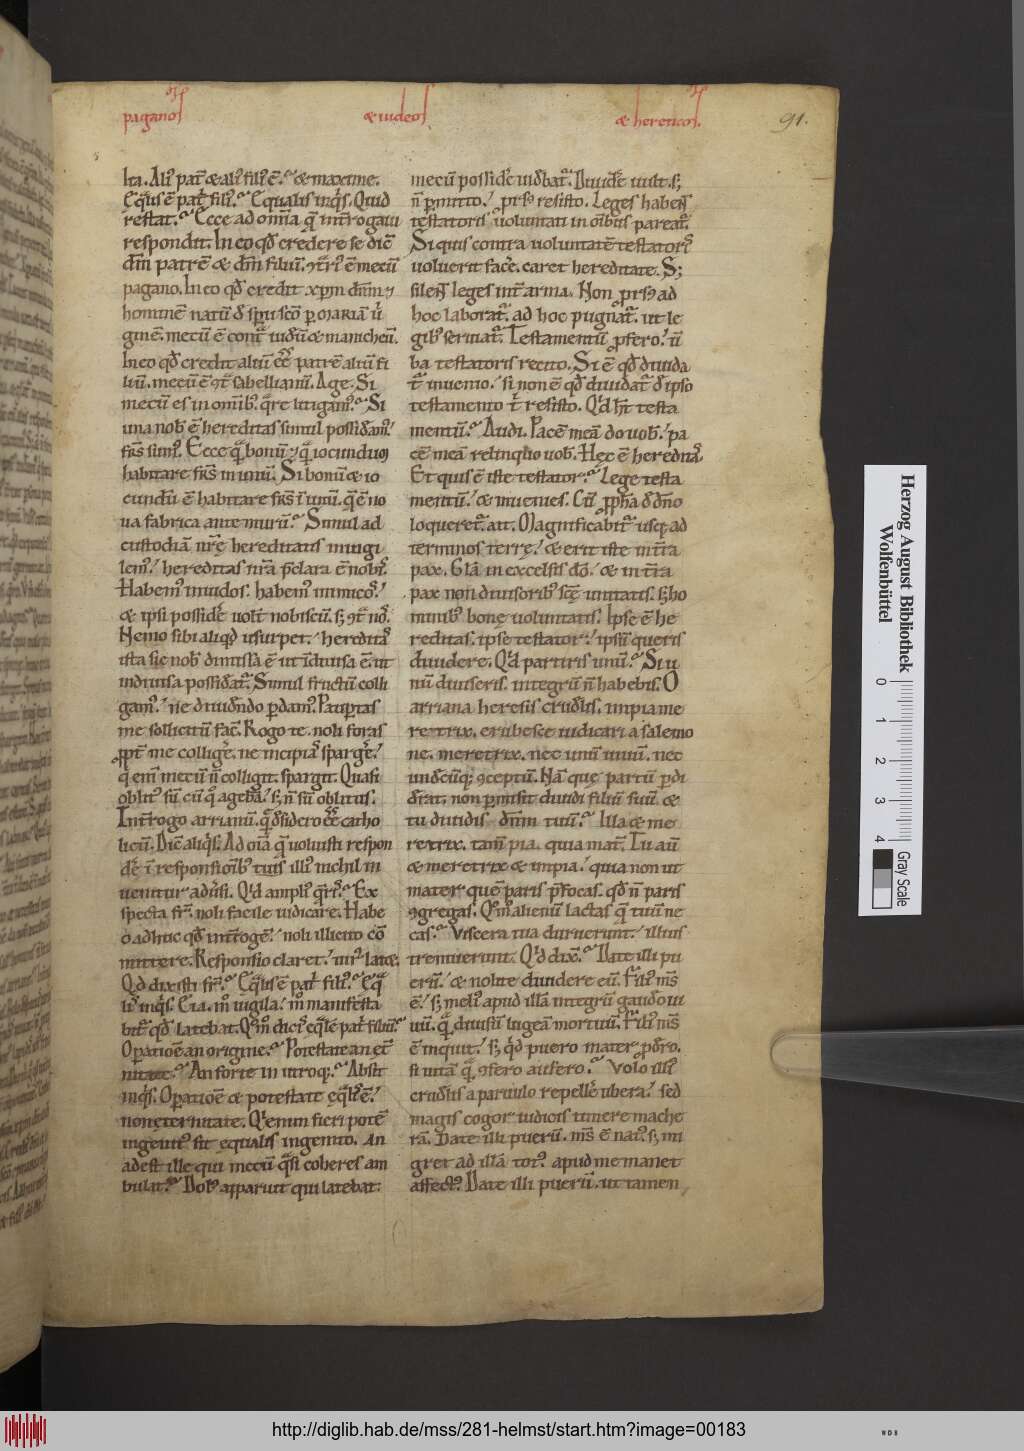 paganos
& iudeos
& hereticos.
91.
Ita. Aliꝰ pat̄ & aliꝰ filiꝰ ē. & maxime.
Eq̄lis ē pat̄ filiꝰ. Equalis inq̄s. Quid
restat. Ecce ad om̄ia q̄ int̄rogaui
respondit. In eo qđ credere se dic̄
dm̄ patrē & dm̄ filiū. ꝯt̄riꝰ ē mecū
pagano. In eo qđ credit xp̄m dn̄m ⁊
hominē natū đ sp̄u sc̄o ꝑ MARIA ū
ginē. mecū ē cont̄ iudeū & manicheū.
In eo qđ credit aliū eē patrē aliū fi
liū. mecū ē ꝯt̄ sabellianū. Age. Si
mecū es in om̄ibꝰ. q̄re litigamꝰ. Si
una nob̄ ē hereditas simul possiđamꝰ.
fr̄s sumꝰ. Ecce q̄ bonū ⁊ q̄ iocunduꝫ
habitare fr̄s in unū. Si bonū & io
cundū ē habitare fr̄s ī unū. q̄ ē no
ua fabrica ante murū. Simul ad
custodiā nr̄ę hereditatis inuigi
lemꝰ. hereditas nr̄a p̄clara ē nobiꝰ.
Habemꝰ inuidos. habemꝰ inimicoꝰ.
& ipsi possidē uolt̄ nobiscū. sꝫ ꝯt̄ noꝰ.
Nemo sibi aliqđ usurpet. hereditaꝰ
ista sic nob̄ dimissa ē ut īdiuisa ē. ut
indiuisa possiđat̄. Simul fructū colli
gamꝰ. ne diuiđndo ꝑdamꝰ. Pauꝑtas
me sollicitū fac̄. Rogo te. noli foras
ꝓpt̄ me collige. ne incipias sparge.
q̄ em̄ mecū n̄ colligit. spargit. Quasi
oblitꝰ sū cū q̄ agebā. sꝫ n̄ sū oblitus.
Int̄rogo arrianū. q̄ đsiđero eē catho
licū. Dic̄ aliq̄s. Ad om̄ia q̄ uoluisti respon
dē. ī responsioībꝰ tuis illiꝰ nichil in
uenitur adusū. Qꝭd ampliꝰ q̄riꝰ. Ex
specta fr̄. noli facile iudicare. Habe
o adhuc qđ int̄rogē. noli illico co
mittere. Responsio claret. int̄ latet.
Qđ dixisti fr̄. Eq̄lis ē pat̄ filiꝰ. Eq̄
lis inq̄s. Eia. īn uigila. īn manifesta
bit̄ qđ latebat. Qm̄ dicis eq̄lē pat̄ filiū.
Oꝑationē an origine. Potestate an et̄
nitate. An forte in utroqꝫ. Absit
inq̄s. Oꝑatioē & potestate eq̄lis ē.
non eternitate. Qꝭ enim fieri potē
ingenitꝰ sit equalis ingenito. An
adest ille qui mecū q̄si coheres am
bulat. Dolꝰ apparuit qui latebat.
mecū possidē uiđbat̄. Diuidē uult. sꝫ
n̄ ꝑmitto. ꝓrsꝰ resisto. Leges habens
testatoris uoluntati in oībus pareat̄.
Si quis contra uoluntatē testatoris
uoluerit facē. caret hereditate. Sꝫ
silens leges int̄ arma. Non ꝓrsꝰ ad
hoc laborat̄. ad hoc pugnat̄. ut le
gibꝰ seruiat̄. Testamentū ꝓfero. ū
ba testatoris recito. Si ē qđ diuida
t̄ inuenio. si non ē qđ diuidat̄ đ ipso
testamento t̄ resisto. Qꝭd ht̄ testa
mentū. Audi. Pacē meā do uob̄. pa
cē meā relinquo uob̄. Hęc ē heređitaꝰ.
Et quis ē iste testator. Lege testa
mentū. & inuenies. Cū ꝓph̄a đ dn̄o
loqueret̄. ait. Magnificabit̄ usqꝫ ad
terminos terrę. & erit iste in t̄ra
pax. Glā in excelsis do. & in t̄ra
pax non diuisoribꝰ sc̄ę unitatis. sꝫ ho
minibꝰ bonę uoluntatis. Ipse ē he
reditas. ipse testator. ipsū queris
diuidere. Qꝭd partiris unū. Si u
nū diuiseris. integrū n̄ habebis. O
arriana heresis cruđlis. impia me
retrix. erubesce iudicari a salemo
ne. meretrix. nec unū uiuū. nec
unđcūqꝫ ꝯceptū. Nā que partū ꝑdi
đrat. non ꝑmisit diuidi filiū suū. &
tu diuidis dn̄m tuū. Illa & me
retrix. tam̄ pia. quia mat̄. Tu aū
& meretrix & impia. quia non ut
mater quē paris p̄focas. qđ n̄ paris
ꝯgregas. Qm̄ alienū lactas q̄ tuū ne
cas. Viscera tua diruerunt. illius
tremuerunt. Qꝭd dix̄. Date illi pu
erū. & nolite diuidere eū. Filiꝰ m̄s
ē. sꝫ meliꝰ apud illā integrū gaudeo ui
uū. q̄ diuisū lugeā mortuū. Filiꝰ m̄s
ē inquit. sꝫ q̄d puero mater ꝓđro.
si uitā q̄ ꝯfero aufero. Volo illiꝰ
cruđlis a paruulo repellē ubera. sed
magis cogor iudicis timere mache
rā. Date illi puerū. m̄s ē natꝰ. sꝫ mi
gret ad illā totꝰ. apud me manet
affectꝰ. Date illi puerū. ut tamen
Herzog August Bibliothek
Wolfenbüttel
0 1 2 3 4
Gray Scale
http://diglib.hab.de/mss/281-helmst/start.htm?image=00183